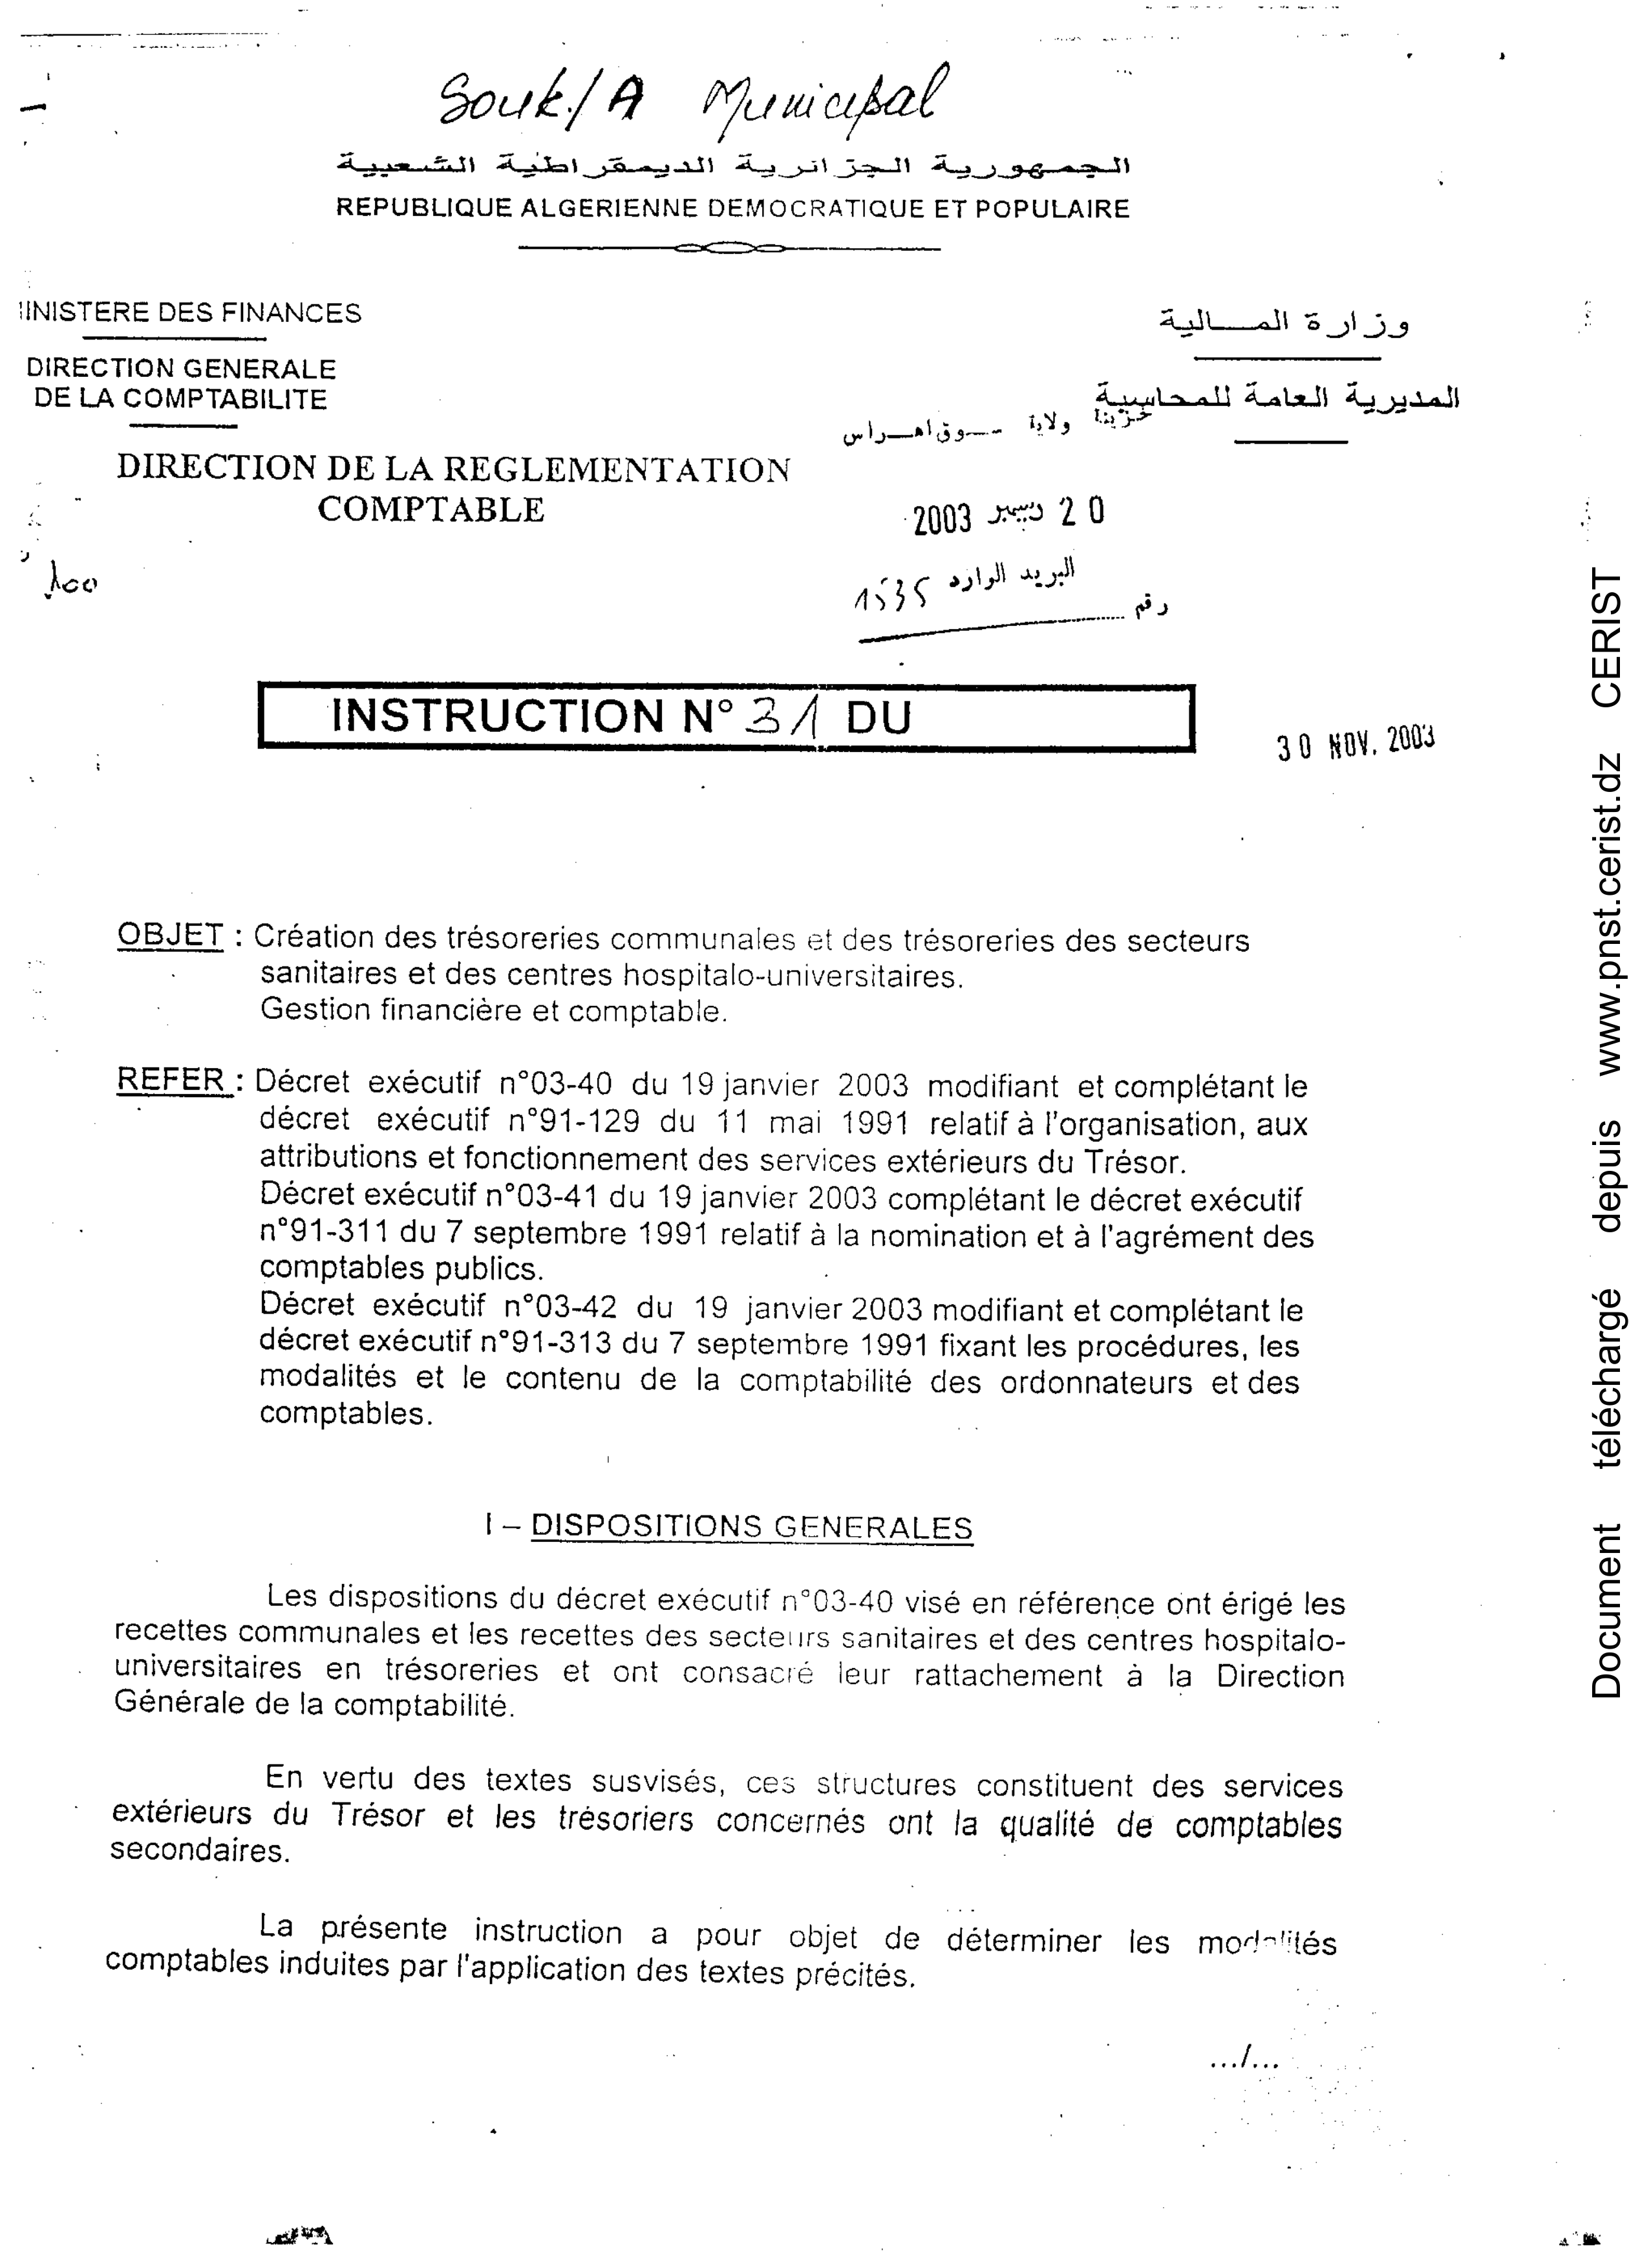 Souk./A Municipal
الجمهورية الجزائرية الديمقراطية الشعبية
REPUBLIQUE ALGERIENNE DEMOCRATIQUE ET POPULAIRE
MINISTERE DES FINANCES
وزارة المـــالية
DIRECTION GENERALE
DE LA COMPTABILITE
المديرية العامة للمحاسبية
خزينة ولاية سـوق اهـراس
DIRECTION DE LA REGLEMENTATION
COMPTABLE
20 ديسمبر 2003
البريد الوارد
رقم 1535
INSTRUCTION N° 31 DU
30 NOV. 2003
OBJET : Création des trésoreries communales et des trésoreries des secteurs
sanitaires et des centres hospitalo-universitaires.
Gestion financière et comptable.
REFER : Décret exécutif n°03-40 du 19 janvier 2003 modifiant et complétant le
décret exécutif n°91-129 du 11 mai 1991 relatif à l'organisation, aux
attributions et fonctionnement des services extérieurs du Trésor.
Décret exécutif n°03-41 du 19 janvier 2003 complétant le décret exécutif
n°91-311 du 7 septembre 1991 relatif à la nomination et à l'agrément des
comptables publics.
Décret exécutif n°03-42 du 19 janvier 2003 modifiant et complétant le
décret exécutif n°91-313 du 7 septembre 1991 fixant les procédures, les
modalités et le contenu de la comptabilité des ordonnateurs et des
comptables.
I – DISPOSITIONS GENERALES
Les dispositions du décret exécutif n°03-40 visé en référence ont érigé les
recettes communales et les recettes des secteurs sanitaires et des centres hospitalo-
universitaires en trésoreries et ont consacré leur rattachement à la Direction
Générale de la comptabilité.
En vertu des textes susvisés, ces structures constituent des services
extérieurs du Trésor et les trésoriers concernés ont la qualité de comptables
secondaires.
La présente instruction a pour objet de déterminer les modalités
comptables induites par l'application des textes précités.
.../...
Document téléchargé depuis www.pnst.cerist.dz CERIST